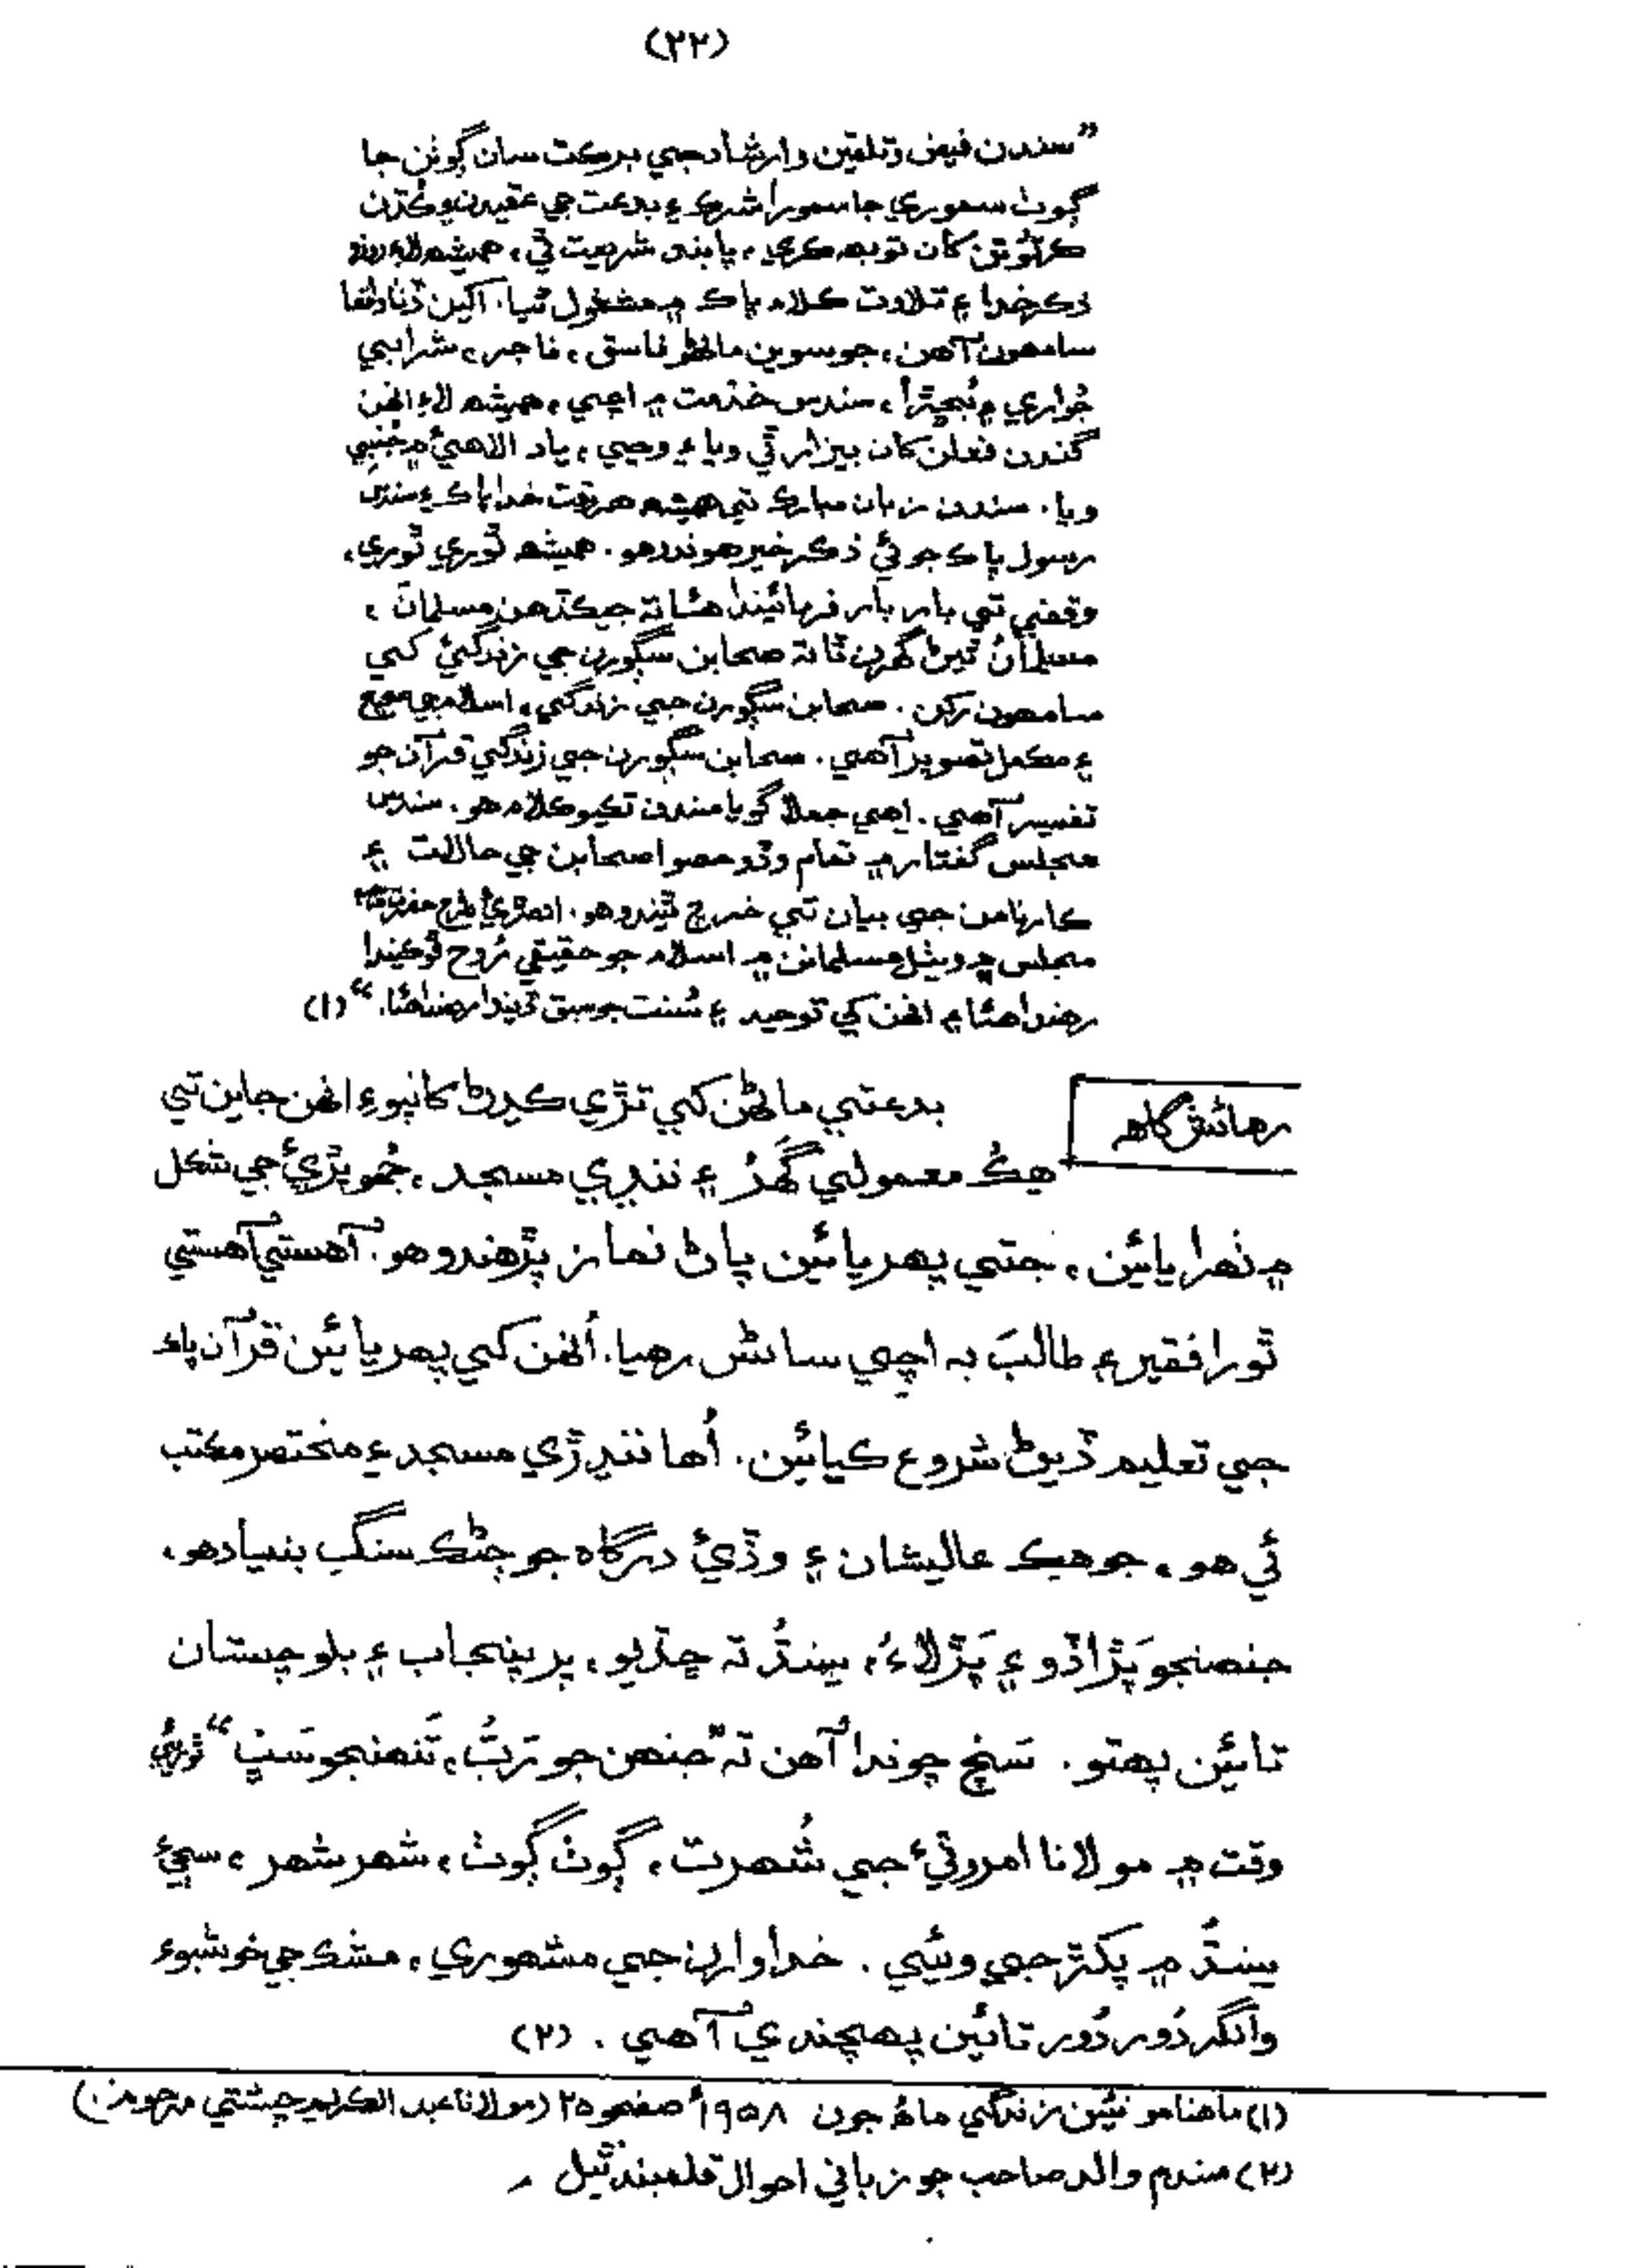 (٢٢)
”سندن فيض وتلقين وارشاد جي برڪت سان ڳوٺن جا
ڳوٺ سموري جا سمورا شرڪ ۽ بدعت جي عقيدن
ڪرتوتن کان توبهه ڪري، پابند شريعت ٿي، هميشه لاءِ
ذڪر خدا ۽ تلاوت ڪلام پاڪ ۾ مشغول ٿيا. اکين ڏٺا
سامهون آهن، جو سوين ماڻهو فاسق، فاجر، شرابي
جُواري ۽ سندس خدمت ۾ اچي، هميشه لاءِ انهن
گندن فعلن کان بيزار ٿي ويا ۽ وڃي، ياد الاهيءَ ۾
ويا. سندن زبان مبارڪ تي هميشه هر وقت خدا پاڪ ۽ سندس
رسول پاڪ جو ئي ذڪر خير هوندو هو. هميشه ٿوري ٿوري،
وقفي تي بار بار فرمائيندا هئا ته جيڪڏهن مسلمان،
مسلمان ٿيڻ گهرن ٿا ته صحابن سڳورن جي زندگيءَ کي
سامهون رکن. صحابن سڳورن جي زندگي، اسلام جي صحيح
۽ مڪمل تصوير آهي. صحابن سڳورن جي زندگي قرآن جو
تفسير آهي. اهي جملا گويا سندن تڪيو ڪلام هو. سندس
مجلس گفتار ۾ تمام وڏو حصو اصحابن جي حالات ۽
ڪارنامن جي بيان تي خرچ ٿيندو هو. اهڙيءَ طرح
مجلس ۾ ويٺل مسلمانن ۾ اسلام جو حقيقي رُوح ڦوڪيندا
رهندا هئا ۽ انهن کي توحيد ۽ سُنت جو سبق ڏيندا رهندا هئا.“ (١)
رهائش گاهه
بدعتي ماڻهن کي تڙي ڪڍڻ کانپوءِ انهن جاين تي
هڪ معمولي گهَرُ ۽ ننڍي مسجد، جهُوپڙيءَ جي شڪل
۾ ٺهرايائين، جتي پهريائين پاڻ نماز پڙهندو هو. آهستي آهستي
ٿورا فقير ۽ طالبَ به اچي ساڻس رهيا. اُنهن کي پهريائين قرآن پاڪ
جي تعليم ڏيڻ شروع ڪيائين. اُها ننڍڙي مسجد ۽ مختصر مڪتب
ئي هو، جو هڪ عاليشان ۽ وڏيءَ درگاه جو ڄڻڪ سنگِ بنياد هو،
جنهنجو پَڙاڏو ۽ پَڙلاءُ، سِنڌُ ته ڇڏيو، پر پنجاب ۽ بلوچستان
تائين پهتو. سَچ چوندا آهن ته ”جنهن جو رَبُّ، تَنهنجو سَڀُ“ ٿوري
وقت ۾ مولانا امروٽيءَ جي شُهرت، ڳوٺ ڳوٺ، شهر شهر، سڄيءَ
سِنڌُ ۾ پکڙجي ويئي. خدا وارن جي مشهوري، مشڪ جي خوشبوءِ
وانگر دُور دُور تائين پهچندي آهي. (٢)
(١) ماهنامو نئين زندگي ماهُ جون ١٩٥٨ع صفحو ٢٥ (مولانا عبدالڪريم چشتي مرحوم.)
(٢) سندم والد صاحب جو زباني احوال قلمبند ٿيل